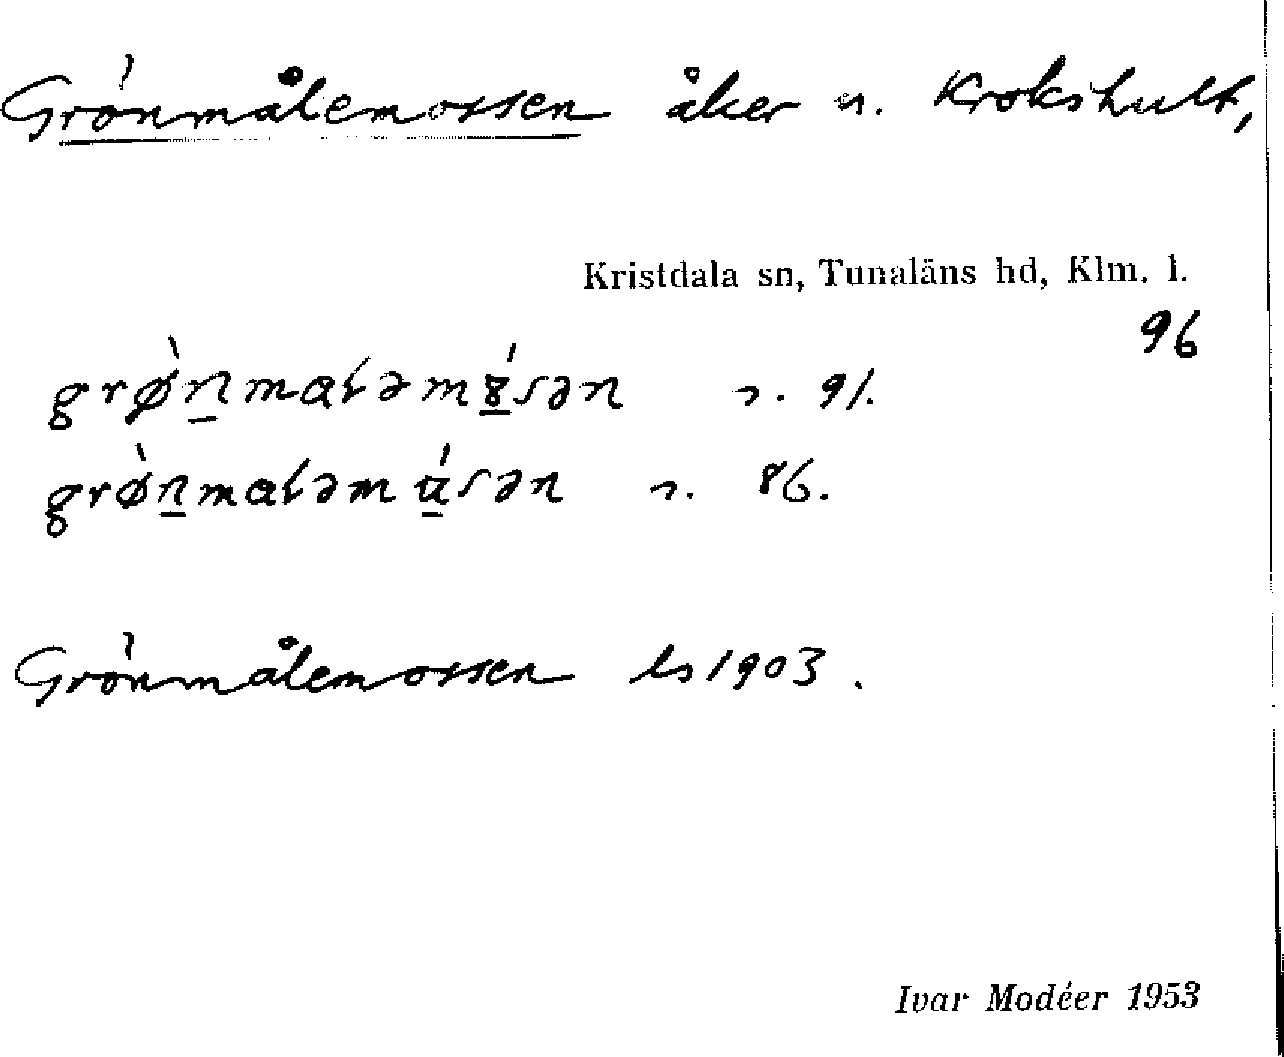 Grönmålemossen åker n. Krokshult,
Kristdala sn, Tunaläns hd, Klm. l.
96
grø̀n̲maɬəmɤ̲́sən s. 91.
grø̀n̲maɬəmú̲sən s. 86.
Grönmålemossen ls 1903.
Ivar Modéer 1953